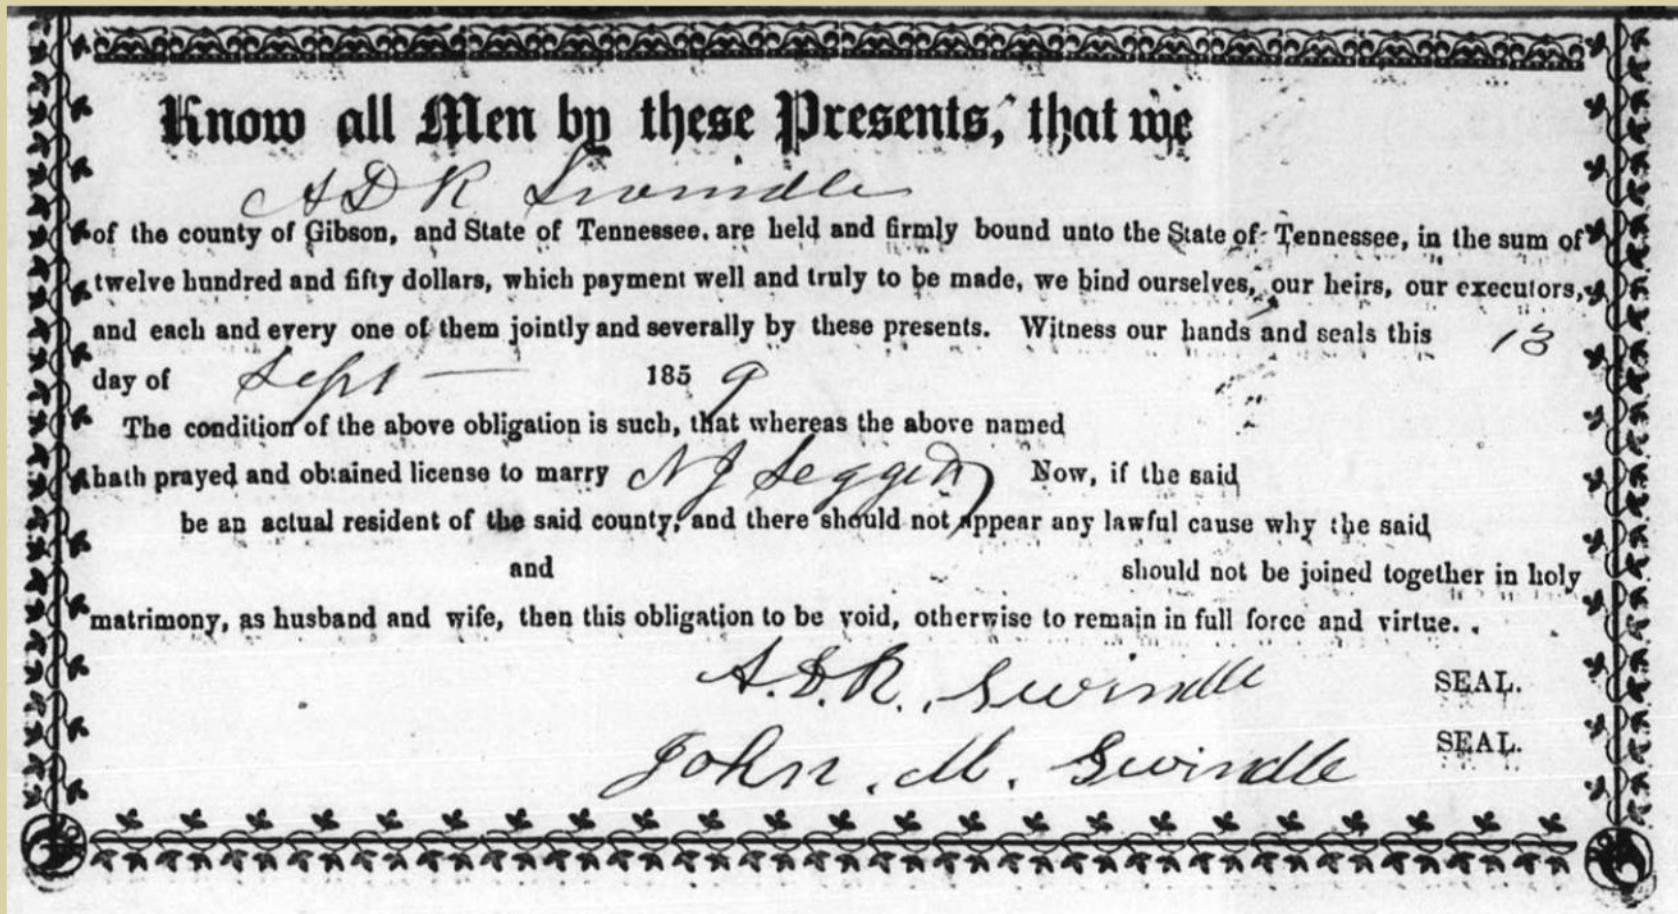 Know all Men by these Presents, that we
A D R Swindle
of the county of Gibson, and State of Tennessee, are held and firmly bound unto the State of Tennessee, in the sum of
twelve hundred and fifty dollars, which payment well and truly to be made, we bind ourselves, our heirs, our executors,
and each and every one of them jointly and severally by these presents. Witness our hands and seals this 13
day of Sept — 1859
The condition of the above obligation is such, that whereas the above named
hath prayed and obtained license to marry N J Seggin Now, if the said
be an actual resident of the said county, and there should not appear any lawful cause why the said
and should not be joined together in holy
matrimony, as husband and wife, then this obligation to be void, otherwise to remain in full force and virtue.
A. D. R. Swindle SEAL.
John. M. Swindle SEAL.